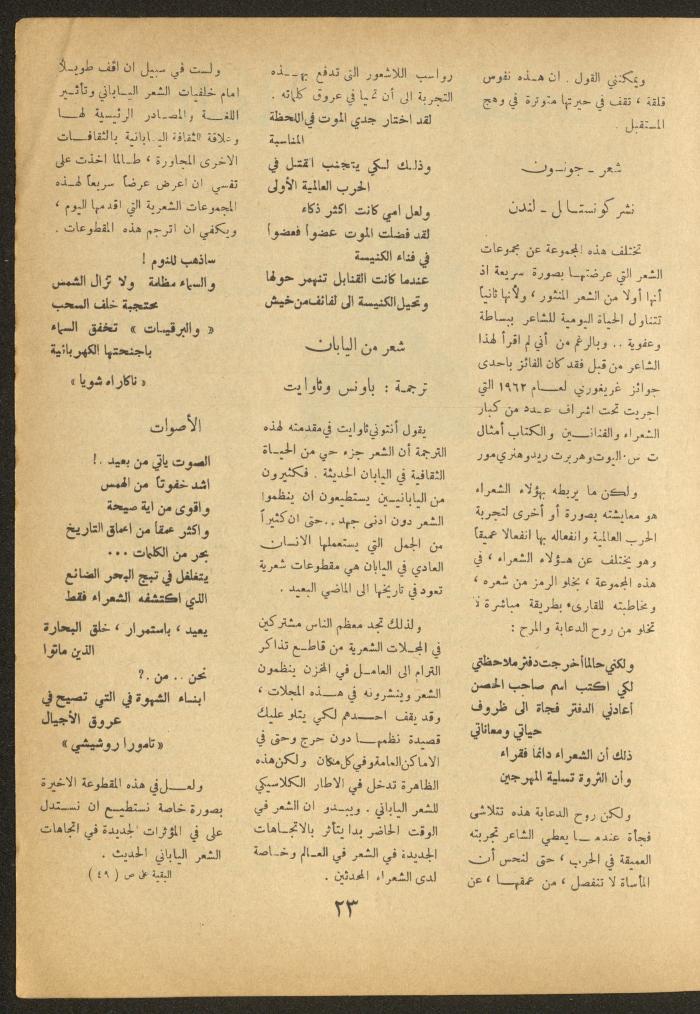 ويمكنني القول . ان هـذه نفوس
قلقة ، تقف في حيرتها متوترة في وهج
المستقبل .
شعر ـ جونسون
نشر كونستابـل ـ لندن
تختلف هذه المجموعة عن مجموعات
الشعر التي عرضتهـا بصورة سريعة اذ
أنها أولا من الشعر المنثور ، ولأنها ثانياً
تتناول الحياة اليومية للشاعر ببساطة
وعفوية .. وبالرغم من أني لم اقرأ لهذا
الشاعر من قبل فقد كان الفائز باحدى
جوائز غريغوري لعـام ١٩٦٢ التي
اجريت تحت اشراف عـدد من كبار
الشعراء والفنانـين والكتاب أمثال
ت س.اليوت وهربرت ريد وهنري مور
ولكن ما يربطه بهؤلاء الشعراء
هو معايشته بصورة أو أخرى لتجربة
الحرب العالمية وانفعاله بها انفعالا عميقاً
وهو يختلف عن هـؤلاء الشعراء ، في
هذه المجموعة ، بخلو الرمز من شعره ،
وبمخاطبته للقارىء بطريقة مباشرة لا
تخلو من روح الدعابة والمرح :
ولكني حالما أخرجت دفتر ملاحظتي
لكي اكتب اسم صاحب الحصن
أعادني الدفتر فجأة الى ظروف
حياتي ومعاناتي
ذلك أن الشعراء دائما فقراء
وأن الثروة تسلية المهرجين
ولكن روح الدعابة هذه تتلاشى
فجأة عندمـا يعطي الشاعر تجربته
العميقة في الحرب ، حتى لنحس أن
المأساة لا تنفصل ، من عمقهـا ، عن
رواسب اللاشعور التي تدفع بهـذه
التجربة الى أن تحيا في عروق كلماته .
لقد اختار جدي الموت في اللحظة
المناسبة
وذلـك لـكي يتجنب القتـل في
الحرب العالمية الأولى
ولعل امي كانت اكثر ذكاء
لقد فضلت الموت عضواً فعضواً
في فناء الكنيسة
عندما كانت القنابل تنهمر حولها
وتحيل الكنيسة الى لفائف من خيش
شعر من اليابان
ترجمة : باونس وثاوايت
يقول أنتوني ثاوايت في مقدمته لهذه
الترجمة أن الشعر جزء حي من الحيـاة
الثقافية في اليابان الحديثة . فكثيرون
من اليابانيـين يستطيعون ان ينظموا
الشعر دون ادنى جهد .. حتى ان كثيراً
من الجمل التي يستعملها الانسـان
العادي في اليابان هي مقطوعات شعرية
تعود في تاريخها الى الماضي البعيد .
ولذلك تجد معظم الناس مشتركين
في المجـلات الشعرية من قاطـع تذاكر
الترام الى العامـل في المخزن ينظمون
الشعر وينشرونه في هـذه المجلات ،
وقد يقف احـدهم لكي يتلو عليك
قصيدة نظمهـا دون حرج وحتى في
الاماكن العامة وفي كل مكان ولكن هذه
الظاهرة تدخل في الاطار الكلاسيكي
للشعر الياباني . ويبـدو ان الشعر في
الوقت الحاضر بدا يتأثر بالاتجـاهات
الجديدة في الشعر في العـالم وخـاصة
لدى الشعراء المحدثين .
ولست في سبيل ان اقف طويـلاً
امام خلفيات الشعر اليـاباني وتأثـير
اللغـة والمصـادر الرئيسية لهـا
وعلاقة الثقافة اليـابانية بالثقافـات
الاخرى المجاورة ، طـالما اخذت على
نفسي ان اعرض عرضاً سريعاً لهـذه
المجموعات الشعرية التي اقدمها اليوم ،
ويكفي ان اترجم هذه المقطوعات .
ساذهب للنوم !
والسماء مظلمة ولا تزال الشمس
محتجبة خلف السحب
« والبرقيـات » تخفق السماء
باجنحتها الكهربائية
« ناكاراه شويا »
الأصوات
الصوت ياتي من بعيد .!
اشد خفوتاً من الهمس
واقوى من اية صيحة
واكثر عمقاً من اعماق التاريخ
بحر من الكلمات ...
يتغلغل في ثبج البحر الضائع
الذي اكتشفه الشعراء فقط
يعيد ، باستمرار ، خلق البحارة
الذين ماتوا
نحن .. من .?
ابنـاء الشهوة في التي تصيح في
عروق الأجيال
« تامورا روشيشي »
ولعـل في هذه المقطوعة الاخيرة
بصورة خاصة نستطيـع ان نستدل
على في المؤثرات الجديدة في اتجاهات
الشعر الياباني الحديث .
البقية على ص ( ٤٩ )
٢٣